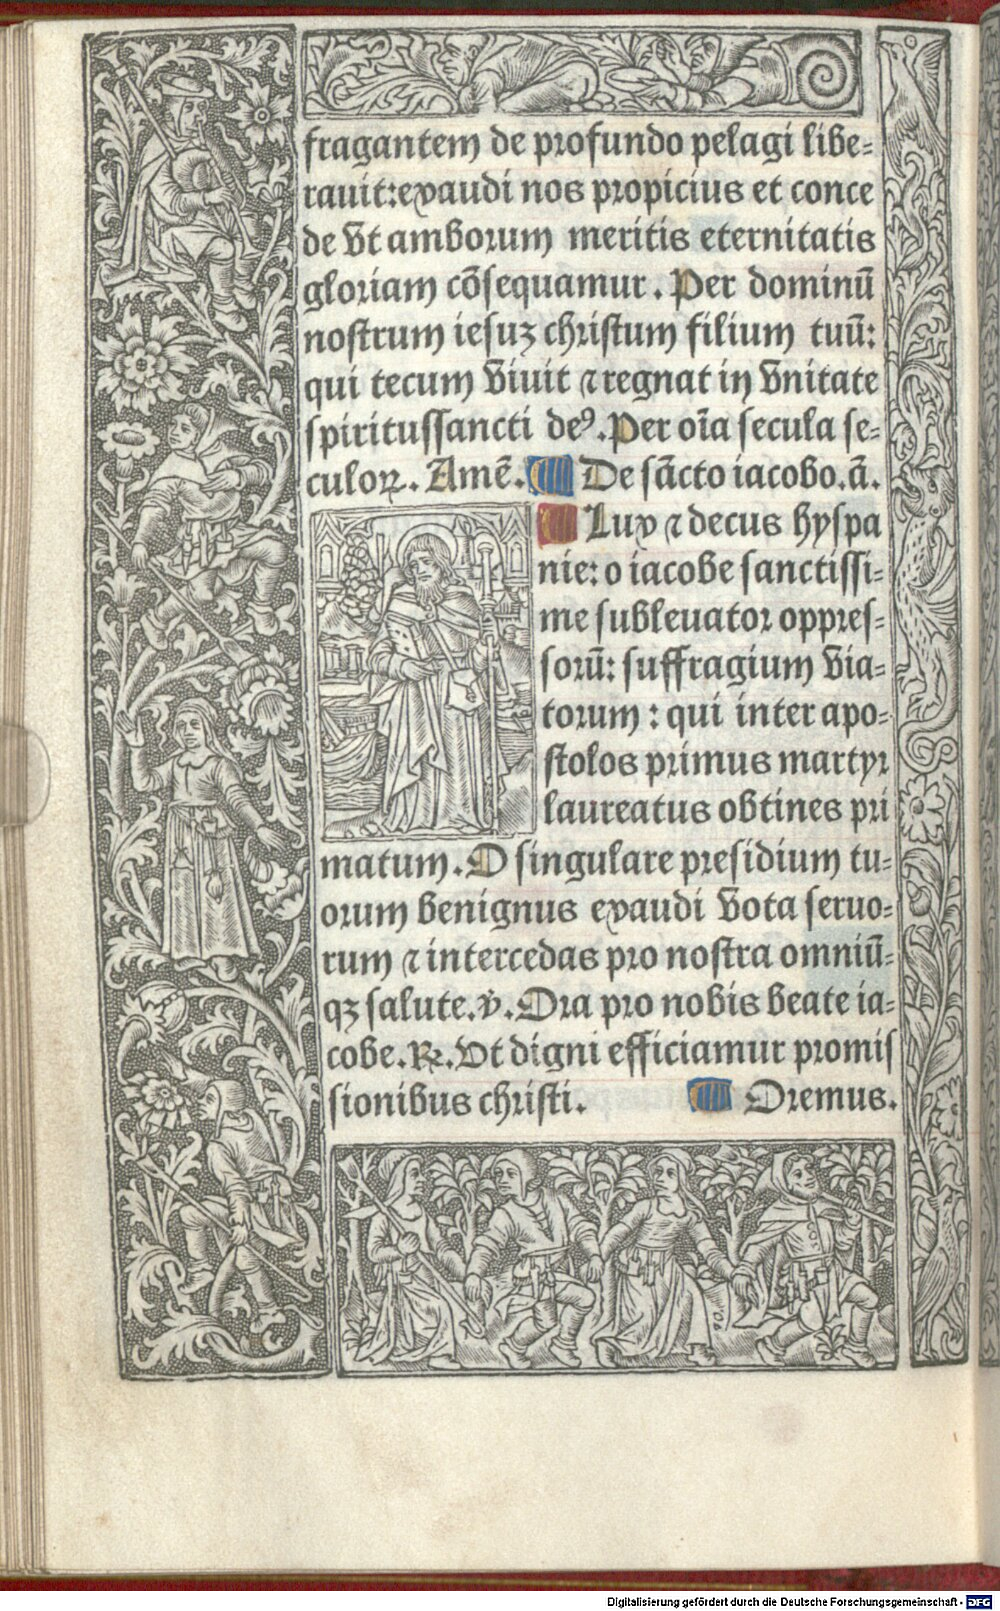 fragantem de profundo pelagi libe-
rauit:exaudi nos propicius et conce
de vt amborum meritis eternitatis
gloriam cõsequamur. Per dominũ
nostrum iesuꝫ christum filium tuũ:
qui tecum viuit ⁊ regnat in vnitate
spiritussancti deꝰ. Per oĩa secula se-
culoꝝ. Amẽ. De sãcto iacobo. ã.
Lux ⁊ decus hyspa
nie: o iacobe sanctissi-
me subleuator oppres-
sorũ: suffragium via-
torum : qui inter apo-
stolos primus martyr
laureatus obtines pri
matum. O singulare presidium tu-
orum benignus exaudi vota seruo-
rum ⁊ intercedas pro nostra omniũ-
qꝫ salute. ℣. Ora pro nobis beate ia-
cobe. ℟. Vt digni efficiamur promis
sionibus christi. Oremus.
Digitalisierung gefördert durch die Deutsche Forschungsgemeinschaft - DFG